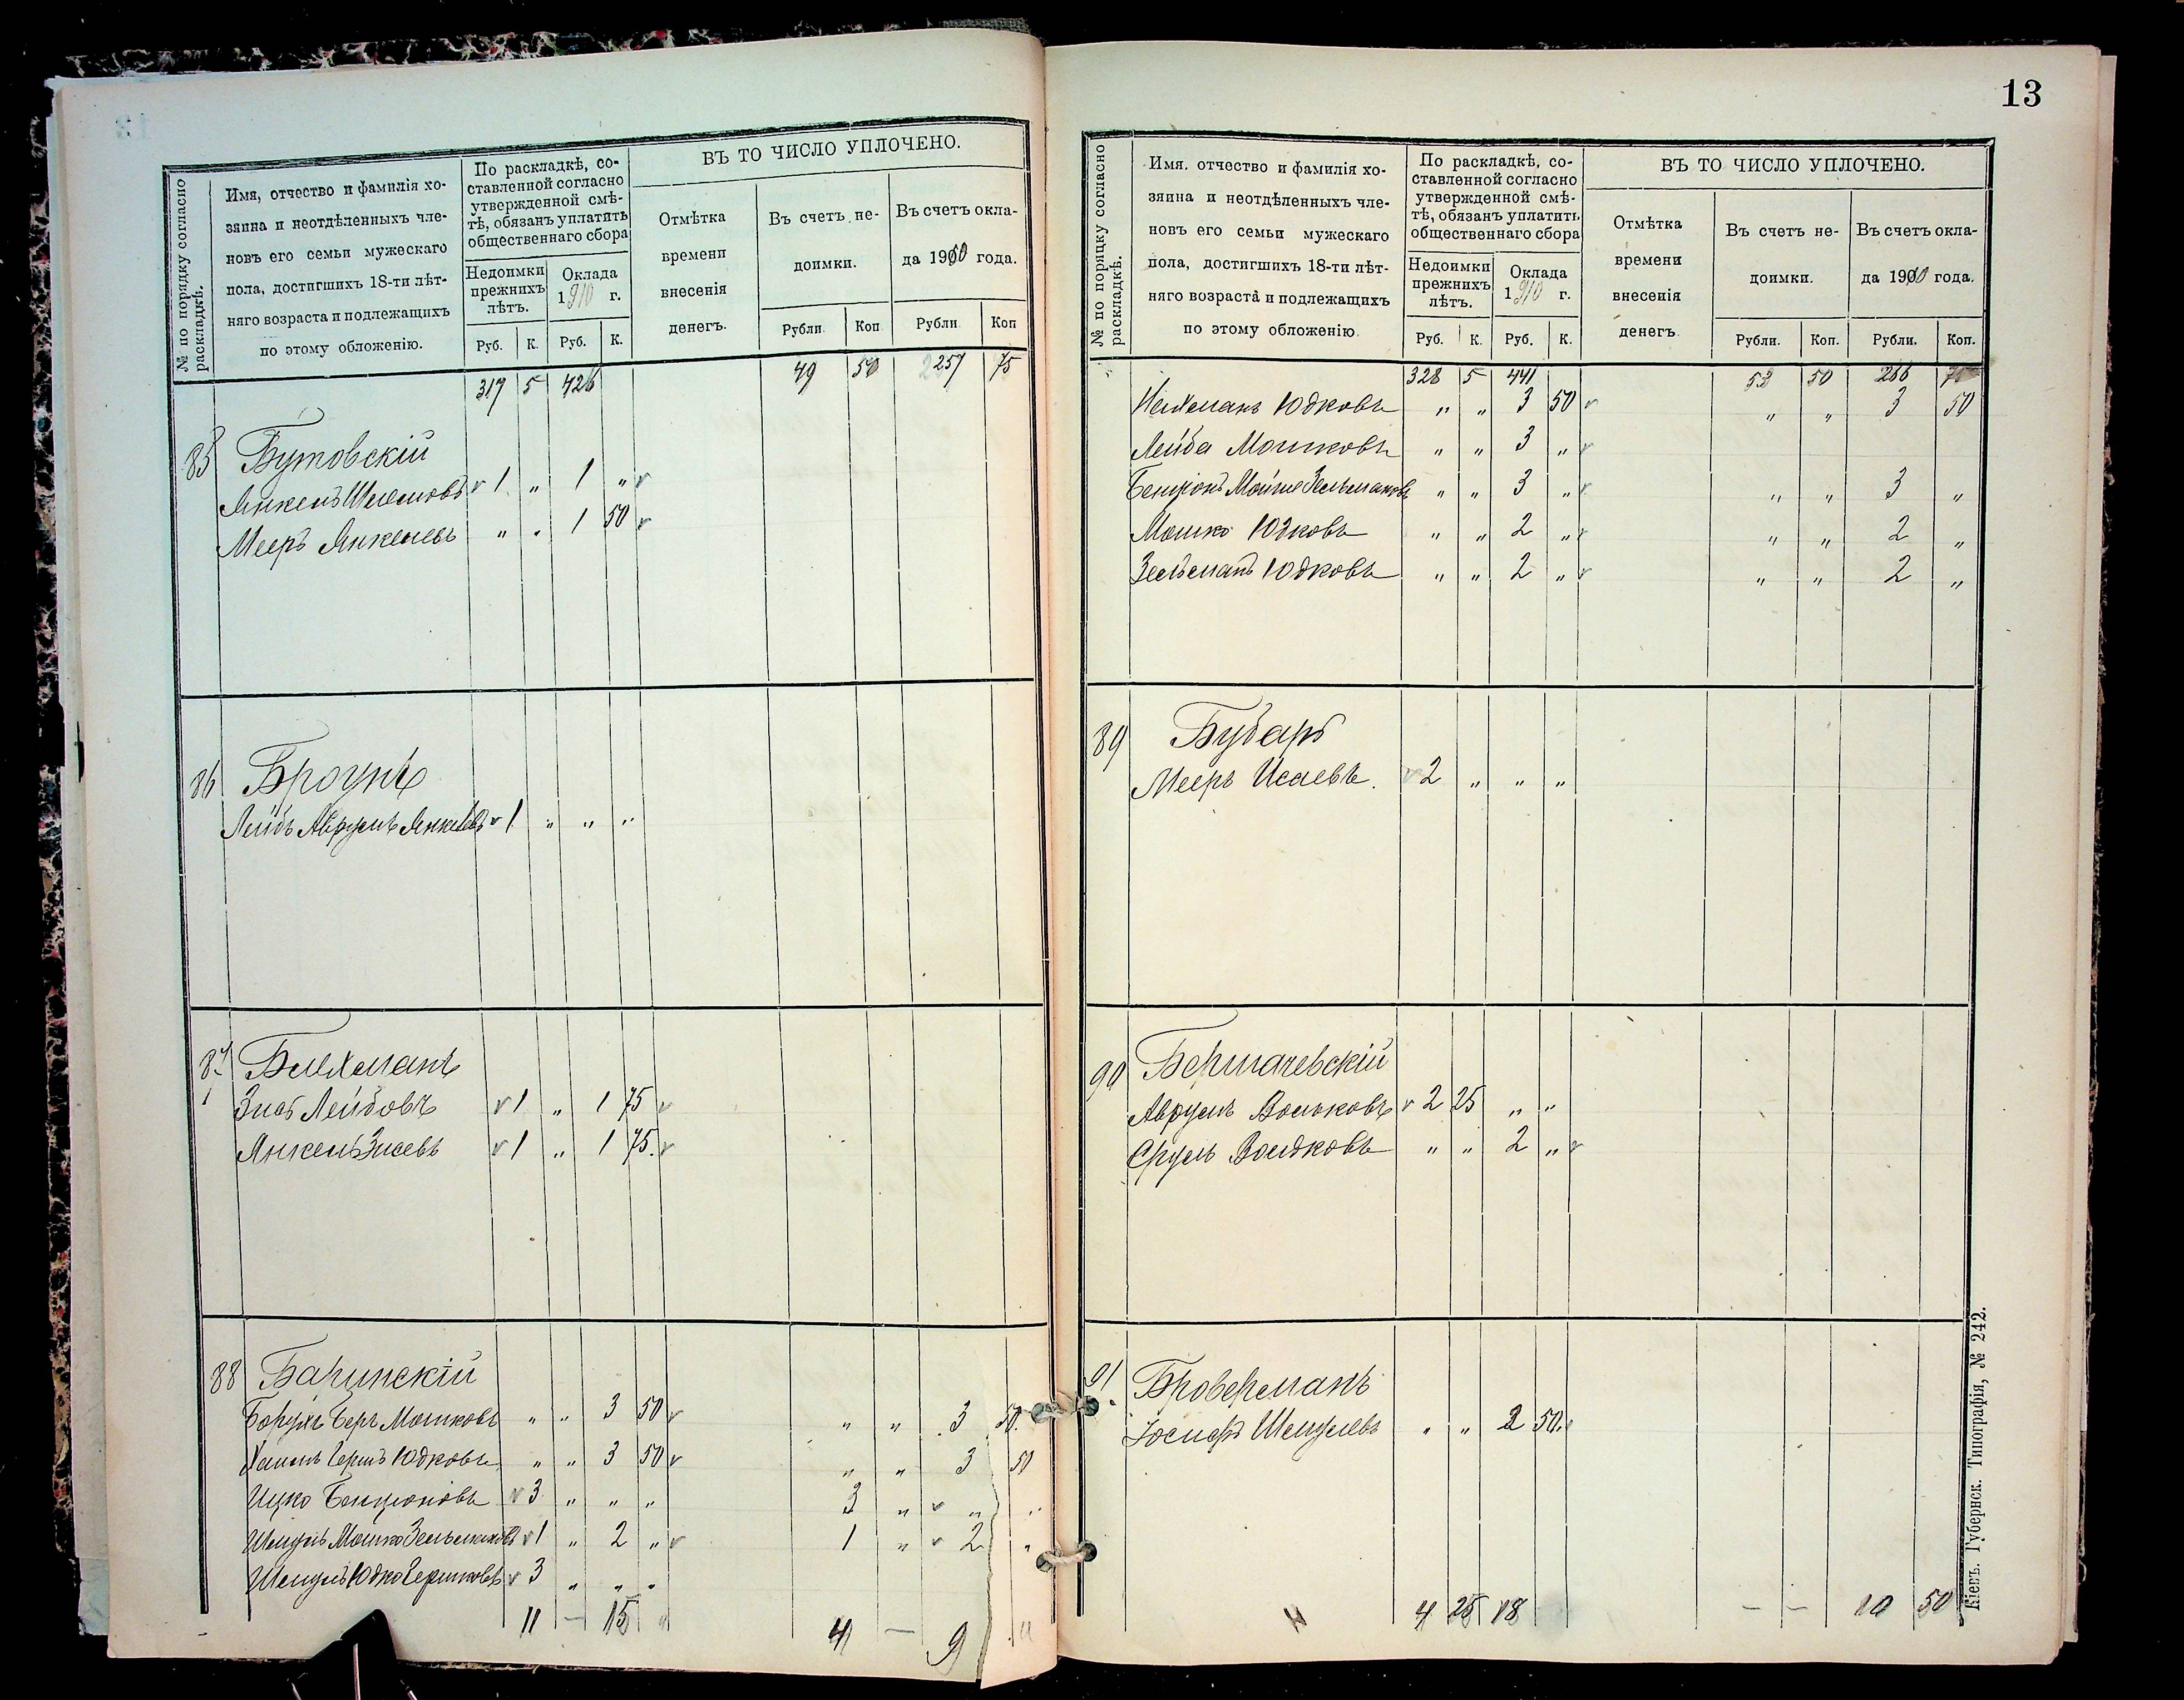 13
№ по порядку согласно раскладкѣ.
Имя, отчество и фамилія хо-
зяина и неотдѣленныхъ чле-
новъ его семьи мужескаго
пола, достигшихъ 18-ти лѣт-
няго возраста и подлежащихъ
по этому обложенію.
По раскладкѣ, со-
ставленной согласно
утвержденной смѣ-
тѣ, обязанъ уплатить
общественнаго сбора
Недоимки
прежнихъ
лѣтъ.
Оклада
1910 г.
Руб. К. Руб. К.
ВЪ ТО ЧИСЛО УПЛОЧЕНО.
Отмѣтка
времени
внесенія
денегъ.
Въ счетъ не-
доимки.
Въ счетъ окла-
да 1910 года.
Рубли Коп Рубли Коп
317 5 426 49 50 257 75
85 Бутовскій
Янкель Шлемовъ 1 „ 1 „
Мееръ Янкелевъ „ „ 1 50
86 Броунъ
Лейбъ Аврумъ Янкелевъ 1 „ „ „
87 Блехманъ
Зусь Лейбовъ 1 „ 1 75
Янкель Зусевъ 1 „ 1 75.
88 Баринскій
Борухъ Беръ Мошковъ „ „ 3 50 „ „ 3 50.
Хаимъ Гершъ Юдковъ „ „ 3 50 „ „ 3 50
Ицко Бенціоновъ 3 „ „ „ 3 „ „ „
Шмуль Мошко Зельмановъ 1 „ 2 „ 1 „ 2 „
Шмуль Юдко Гершковъ 3 „ „ „
11 — 15 „ 4 — 9 „
№ по порядку согласно раскладкѣ.
Имя, отчество и фамилія хо-
зяина и неотдѣленныхъ чле-
новъ его семьи мужескаго
пола, достигшихъ 18-ти лѣт-
няго возраста и подлежащихъ
по этому обложенію
По раскладкѣ, со-
ставленной согласно
утвержденной смѣ-
тѣ, обязанъ уплатить
общественнаго сбора
Недоимки
прежнихъ
лѣтъ.
Оклада
1910 г.
Руб. К. Руб. К.
ВЪ ТО ЧИСЛО УПЛОЧЕНО.
Отмѣтка
времени
внесенія
денегъ.
Въ счетъ не-
доимки.
Въ счетъ окла-
да 1910 года.
Рубли. Коп. Рубли. Коп.
328 5 441 53 50 266 75
Нехеманъ Юдковъ „ „ 3 50 „ „ 3 50
Лейба Мошковъ „ „ 3 „
Бенціонъ Мойше Зельмановъ „ „ 3 „ „ „ 3 „
Мошко Юдковъ „ „ 2 „ „ „ 2 „
Зельманъ Юдковъ „ „ 2 „ „ „ 2 „
89 Бубаръ
Мееръ Исаевъ. 2 „ „ „
90 Бершачевскій
Аврумъ Вольковъ 2 25 „ „
Сруль Вольковъ „ „ 2 „
91 Броверманъ
Іосифъ Шмулевъ „ „ 2 50.
4 25 18 — — 10 50
Кіевъ. Губернск. Типографія, № 242.